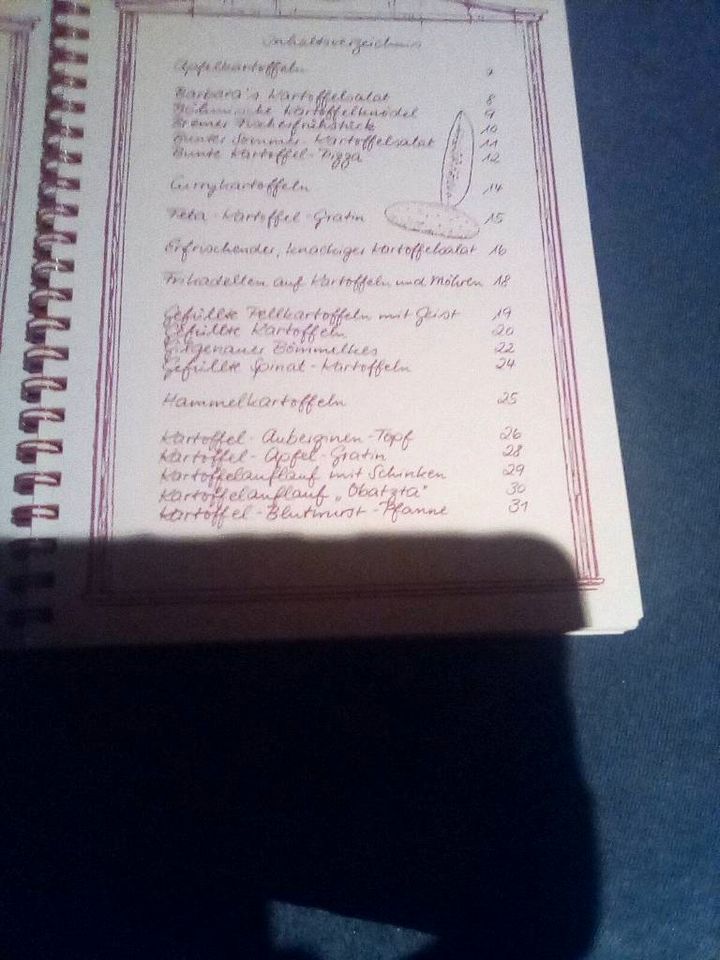 Inhaltsverzeichnis
Apfelkartoffeln 7
Barbara's Kartoffelsalat 8
Böhmische Kartoffelknödel 9
Bremer Fischerfrühstück 10
Bunter Sommer-Kartoffelsalat 11
Bunte Kartoffel-Pizza 12
Currykartoffeln 14
Feta-Kartoffel-Gratin 15
Erfrischender, knackiger Kartoffelsalat 16
Frikadellen auf Kartoffeln und Möhren 18
Gefüllte Pellkartoffeln mit Geist 19
Gefüllte Kartoffeln 20
Bömmelkes 22
Gefüllte Spinat-Kartoffeln 24
Hammelkartoffeln 25
Kartoffel-Auberginen-Topf 26
Kartoffel-Apfel-Gratin 28
Kartoffelauflauf mit Schinken 29
Kartoffelauflauf „Obatzta" 30
Kartoffel-Blutwurst-Pfanne 31